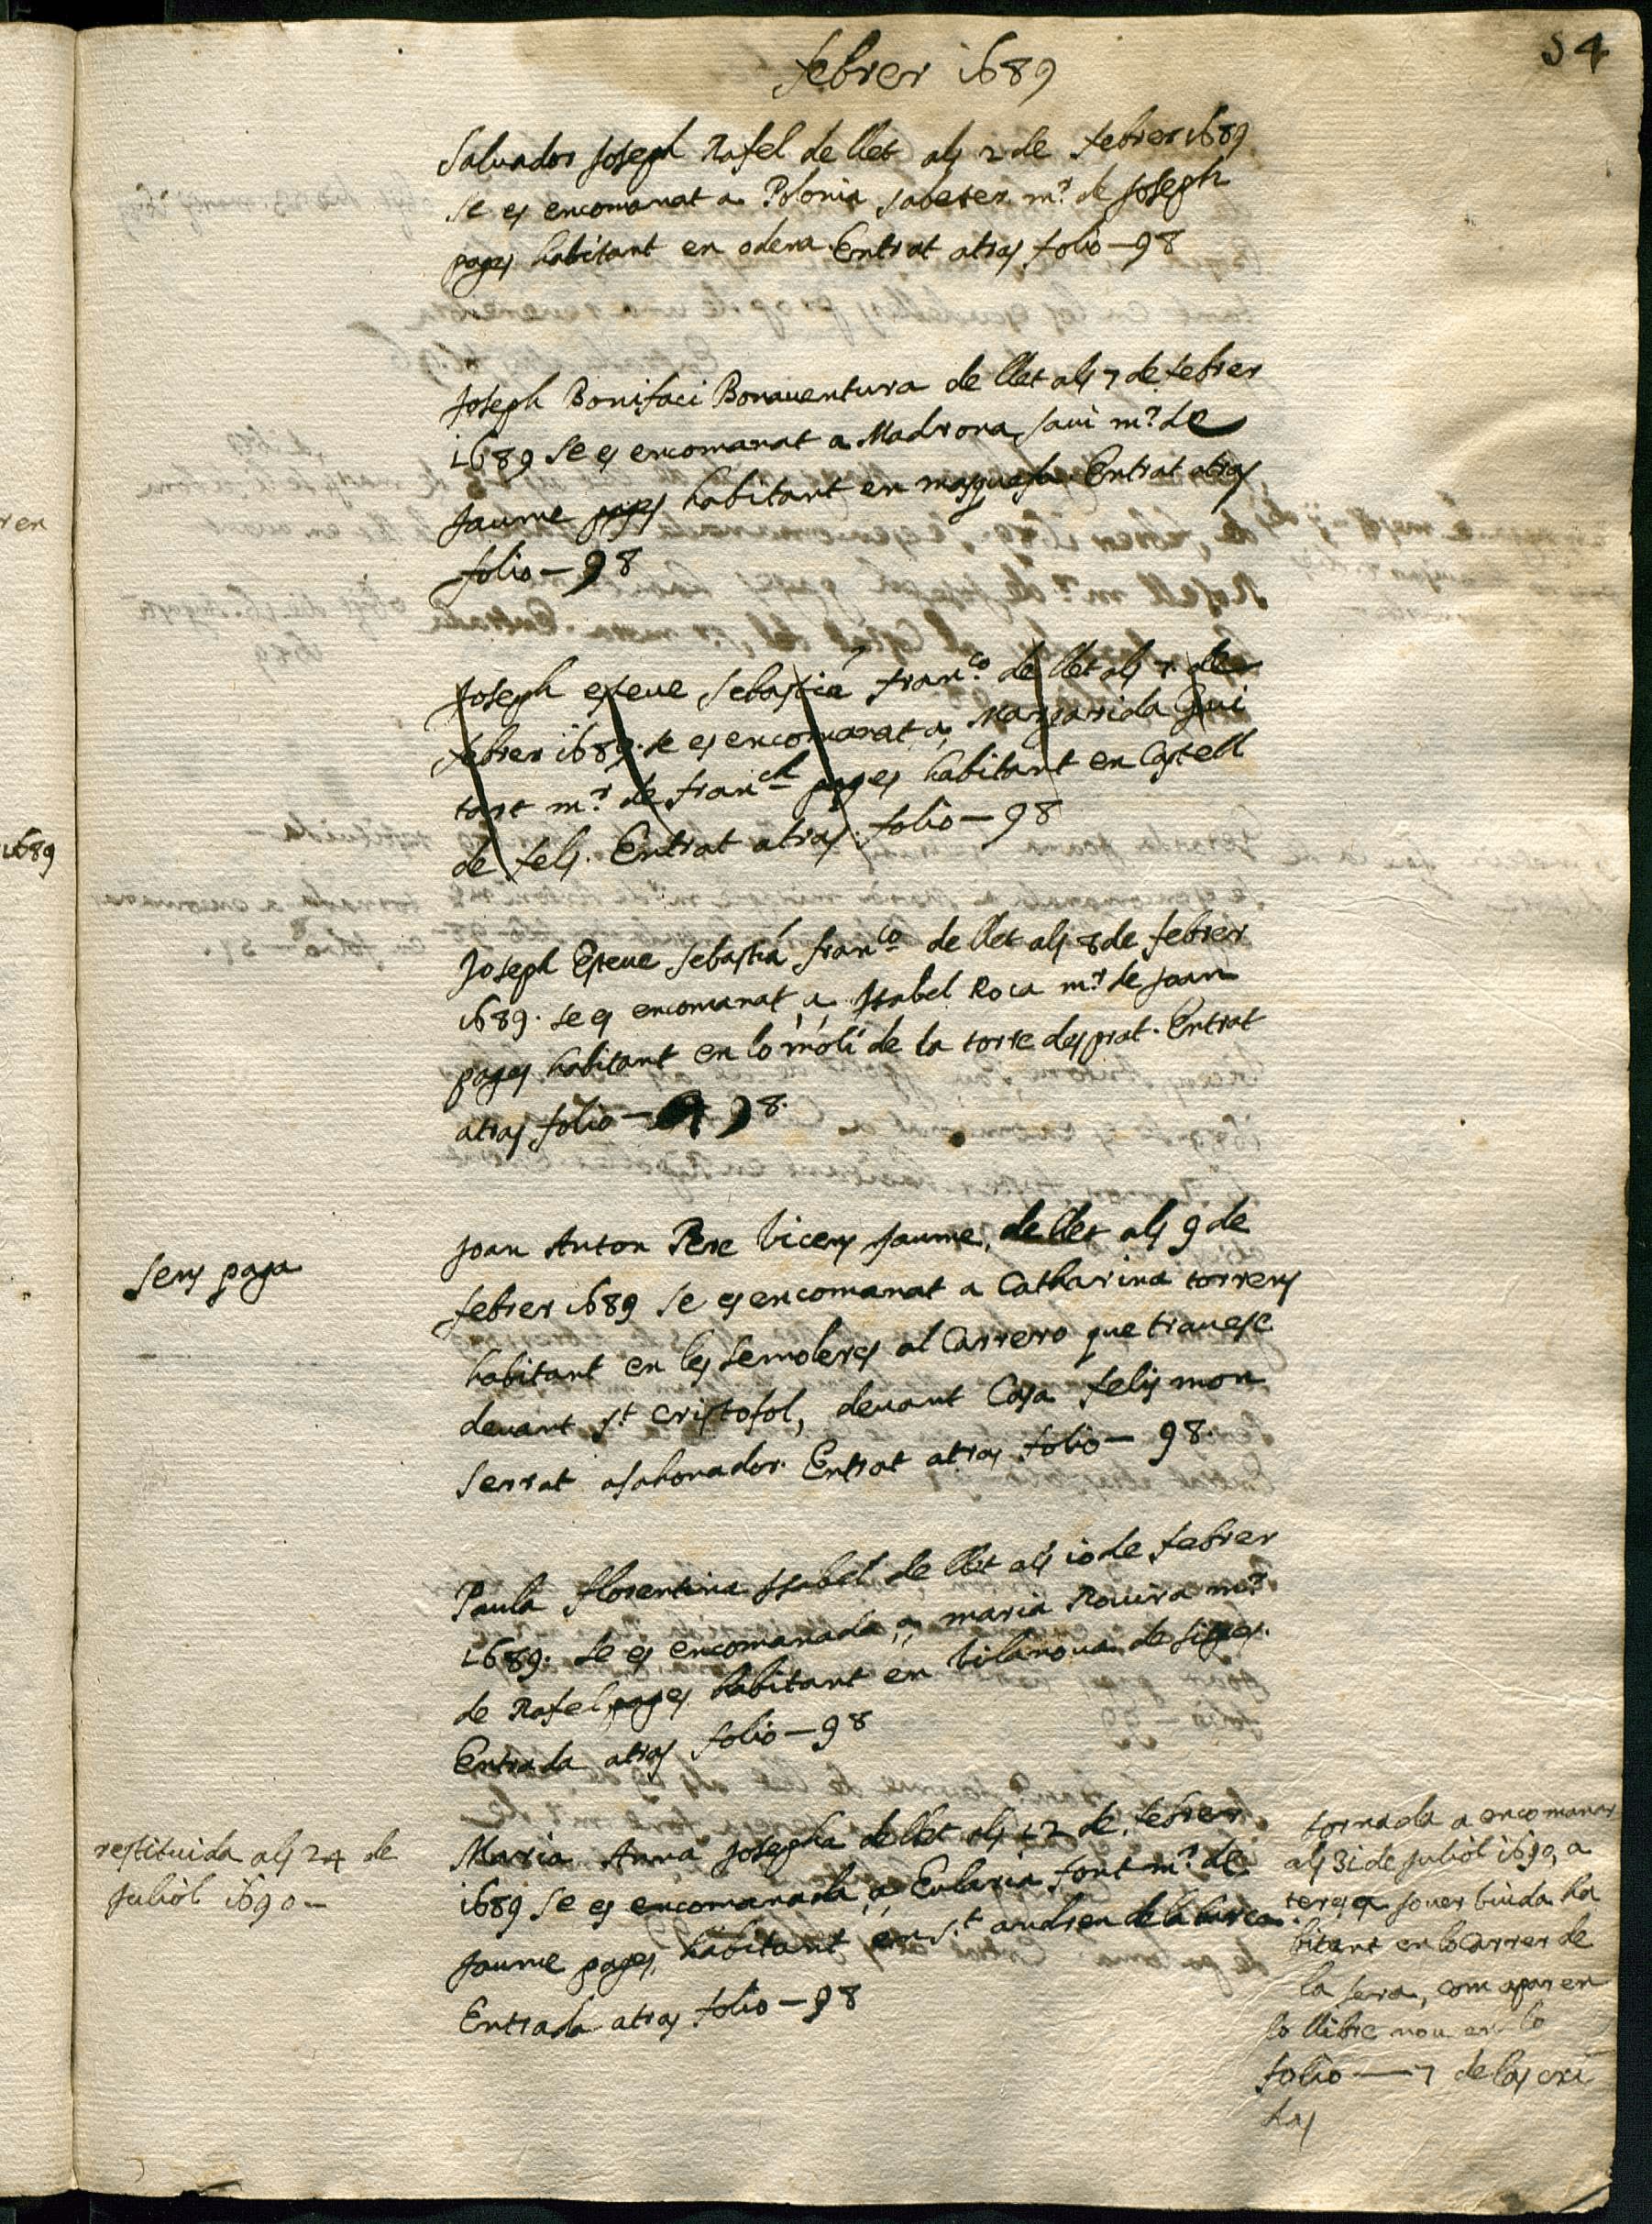 54
febrer 1689
Salvador Joseph Rafel de llet als 2 de febrer 1689
se es encomanat a Polonia sabeter mr de Joseph
pages habitant en odena. Entrat atras folio — 98
Joseph Bonifaci Bonaventura de llet als 7 de febrer
1689 se es encomanat a Madrona saui mr de
Jaume pages habitant en masquefa. Entrat atras
folio — 98
Joseph esteve Sebastiá franco de llet als 7 de
febrer 1689. se es encomanat a, Margarida Gui
tart mr de franch pages habitant en Castell
de fels. Entrat atras folio — 98
Joseph Esteve Sebastiá franco de llet als 8 de febrer
1689. se es encomanat, a, Isabel Roca mr de Joan
pages habitant en lo molí de la torre des prat. Entrat
atras folio — 98.
Sens paga
Joan Anton Pere Vicens Jaume, de llet als 9 de
febrer 1689 se es encomanat a Catharina torrens
habitant en les semoleres al Carrero que travese
devant st cristofol, devant Casa felis mon
serrat asahonador. Entrat atras folio — 98.
Paula florentina Isabel de llet als 10 de febrer
1689. se es encomanada, a, maria Rovira mr
de Rafel pages habitant en vilanova de sitges.
Entrada atras folio — 98
restituida als 24 de
Juliol 1690 —
Maria Anna Josepha de llet als 12 de febrer
1689 se es encomanada, a, Eularia font mr de
Jaume pages, habitant en st andreu de la barca.
Entrada atras folio — 98
tornada a encomanar
als 31 de Juliol 1690, a
teresa sover viuda ha
bitant en lo Carrer de
la sera, com apar en
lo llibre nou en lo
folio — 7 de las cri
das
ren
1689